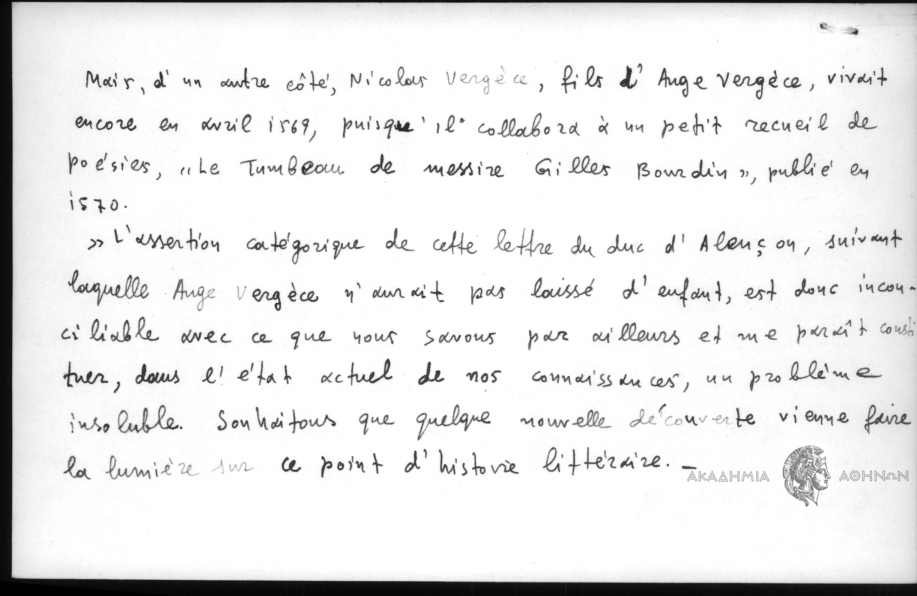 Mais, d'un autre côté, Nicolas Vergèce, fils d'Ange Vergèce, vivait
encore en avril 1569, puisqu'il collabora à un petit recueil de
poésies, «Le Tumbeau de messire Gilles Bourdin», publié en
1570.
» L'assertion catégorique de cette lettre du duc d'Alençon, suivant
laquelle Ange Vergèce n'aurait pas laissé d'enfant, est donc incon-
ciliable avec ce que nous savons par ailleurs et me paraît consti
tuer, dans l'état actuel de nos connaissances, un problème
insoluble. Souhaitons que quelque nouvelle découverte vienne faire
la lumière sur ce point d'histoire littéraire. –
ΑΚΑΔΗΜΙΑ ΑΘΗΝΩΝ